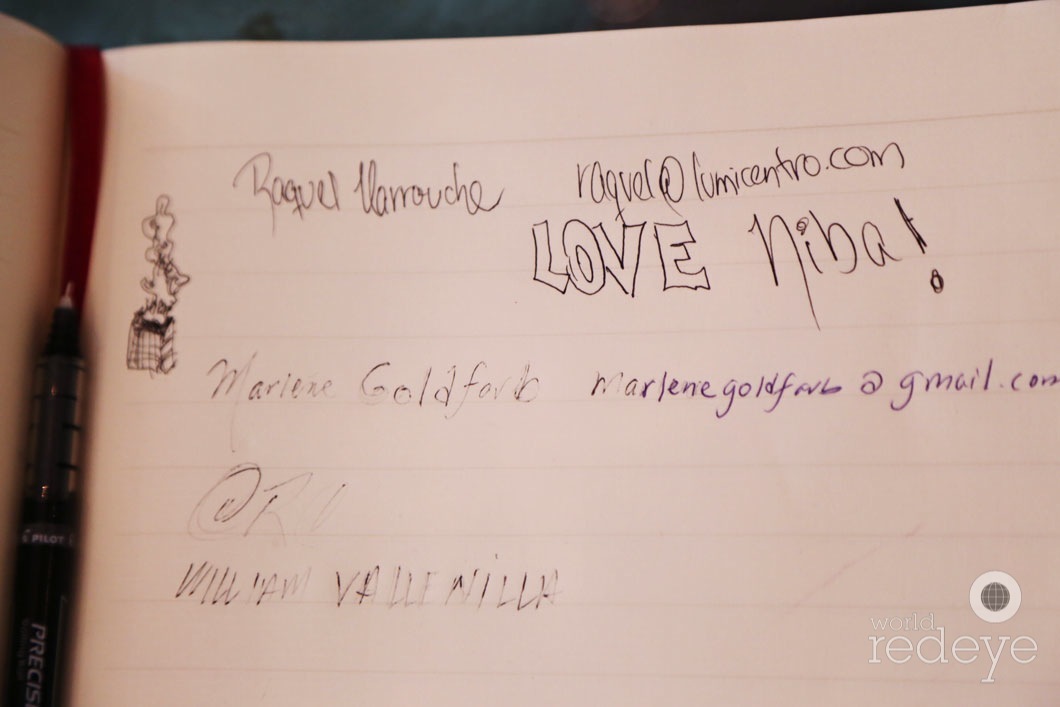 Raquel Harrouche raquel@lumicentro.com
LOVE Niba!
Marlene Goldfarb marlenegoldfarb@gmail.com
@R
WILLIAM VALLENILLA
PILOT
PRECISE
world
redeye